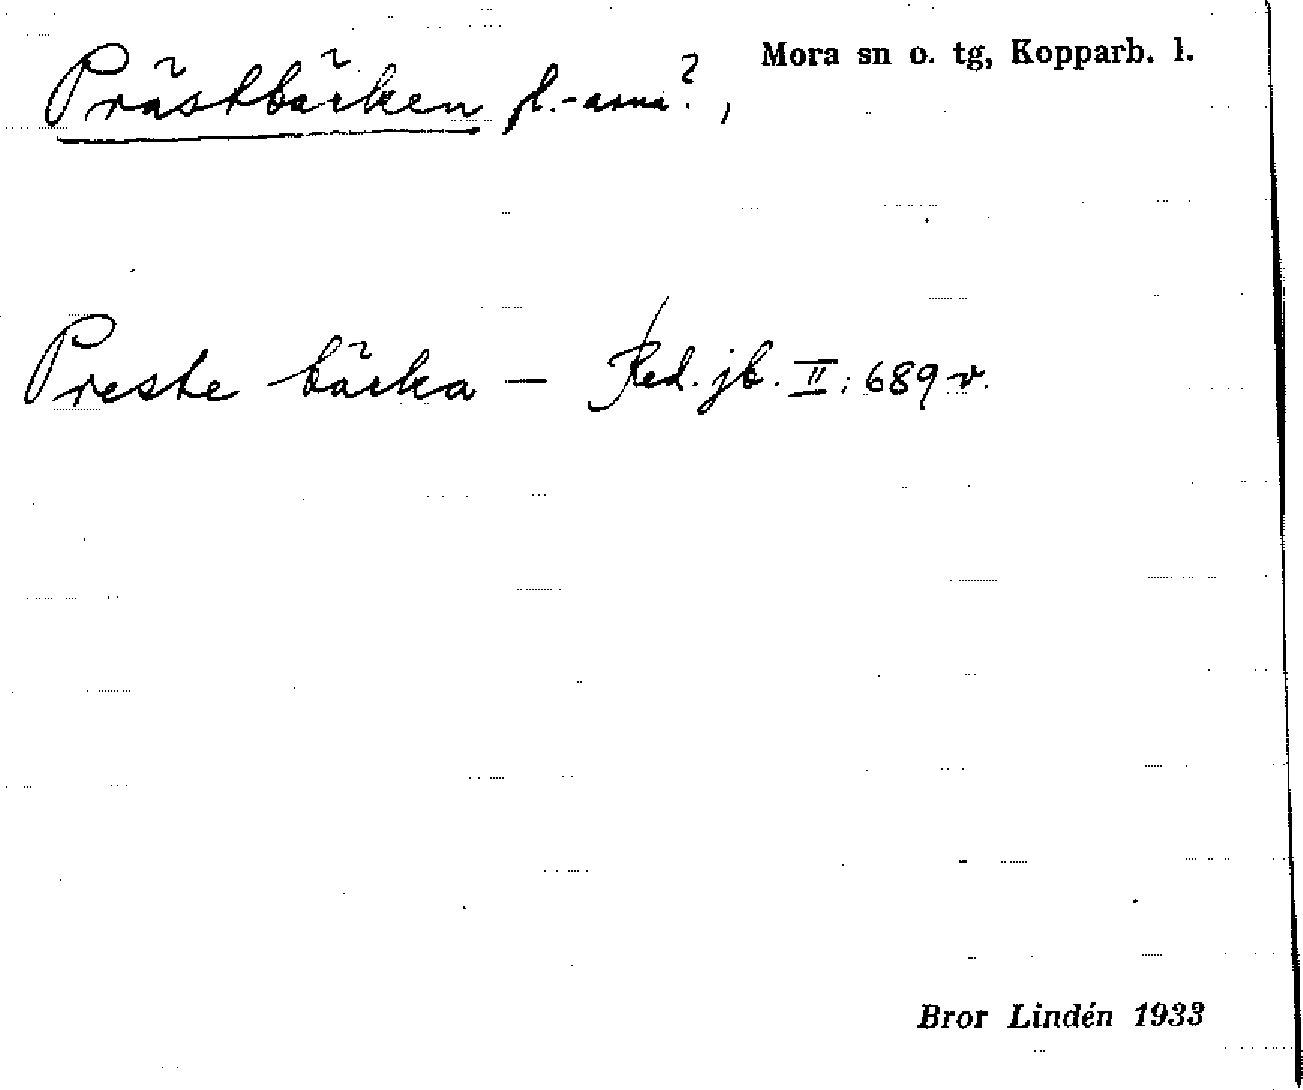 Prästbäcken pl. -arna?,
Mora sn o. tg, Kopparb. l.
Preste bäcka — Red. jb. II: 689 v.
Bror Lindén 1933